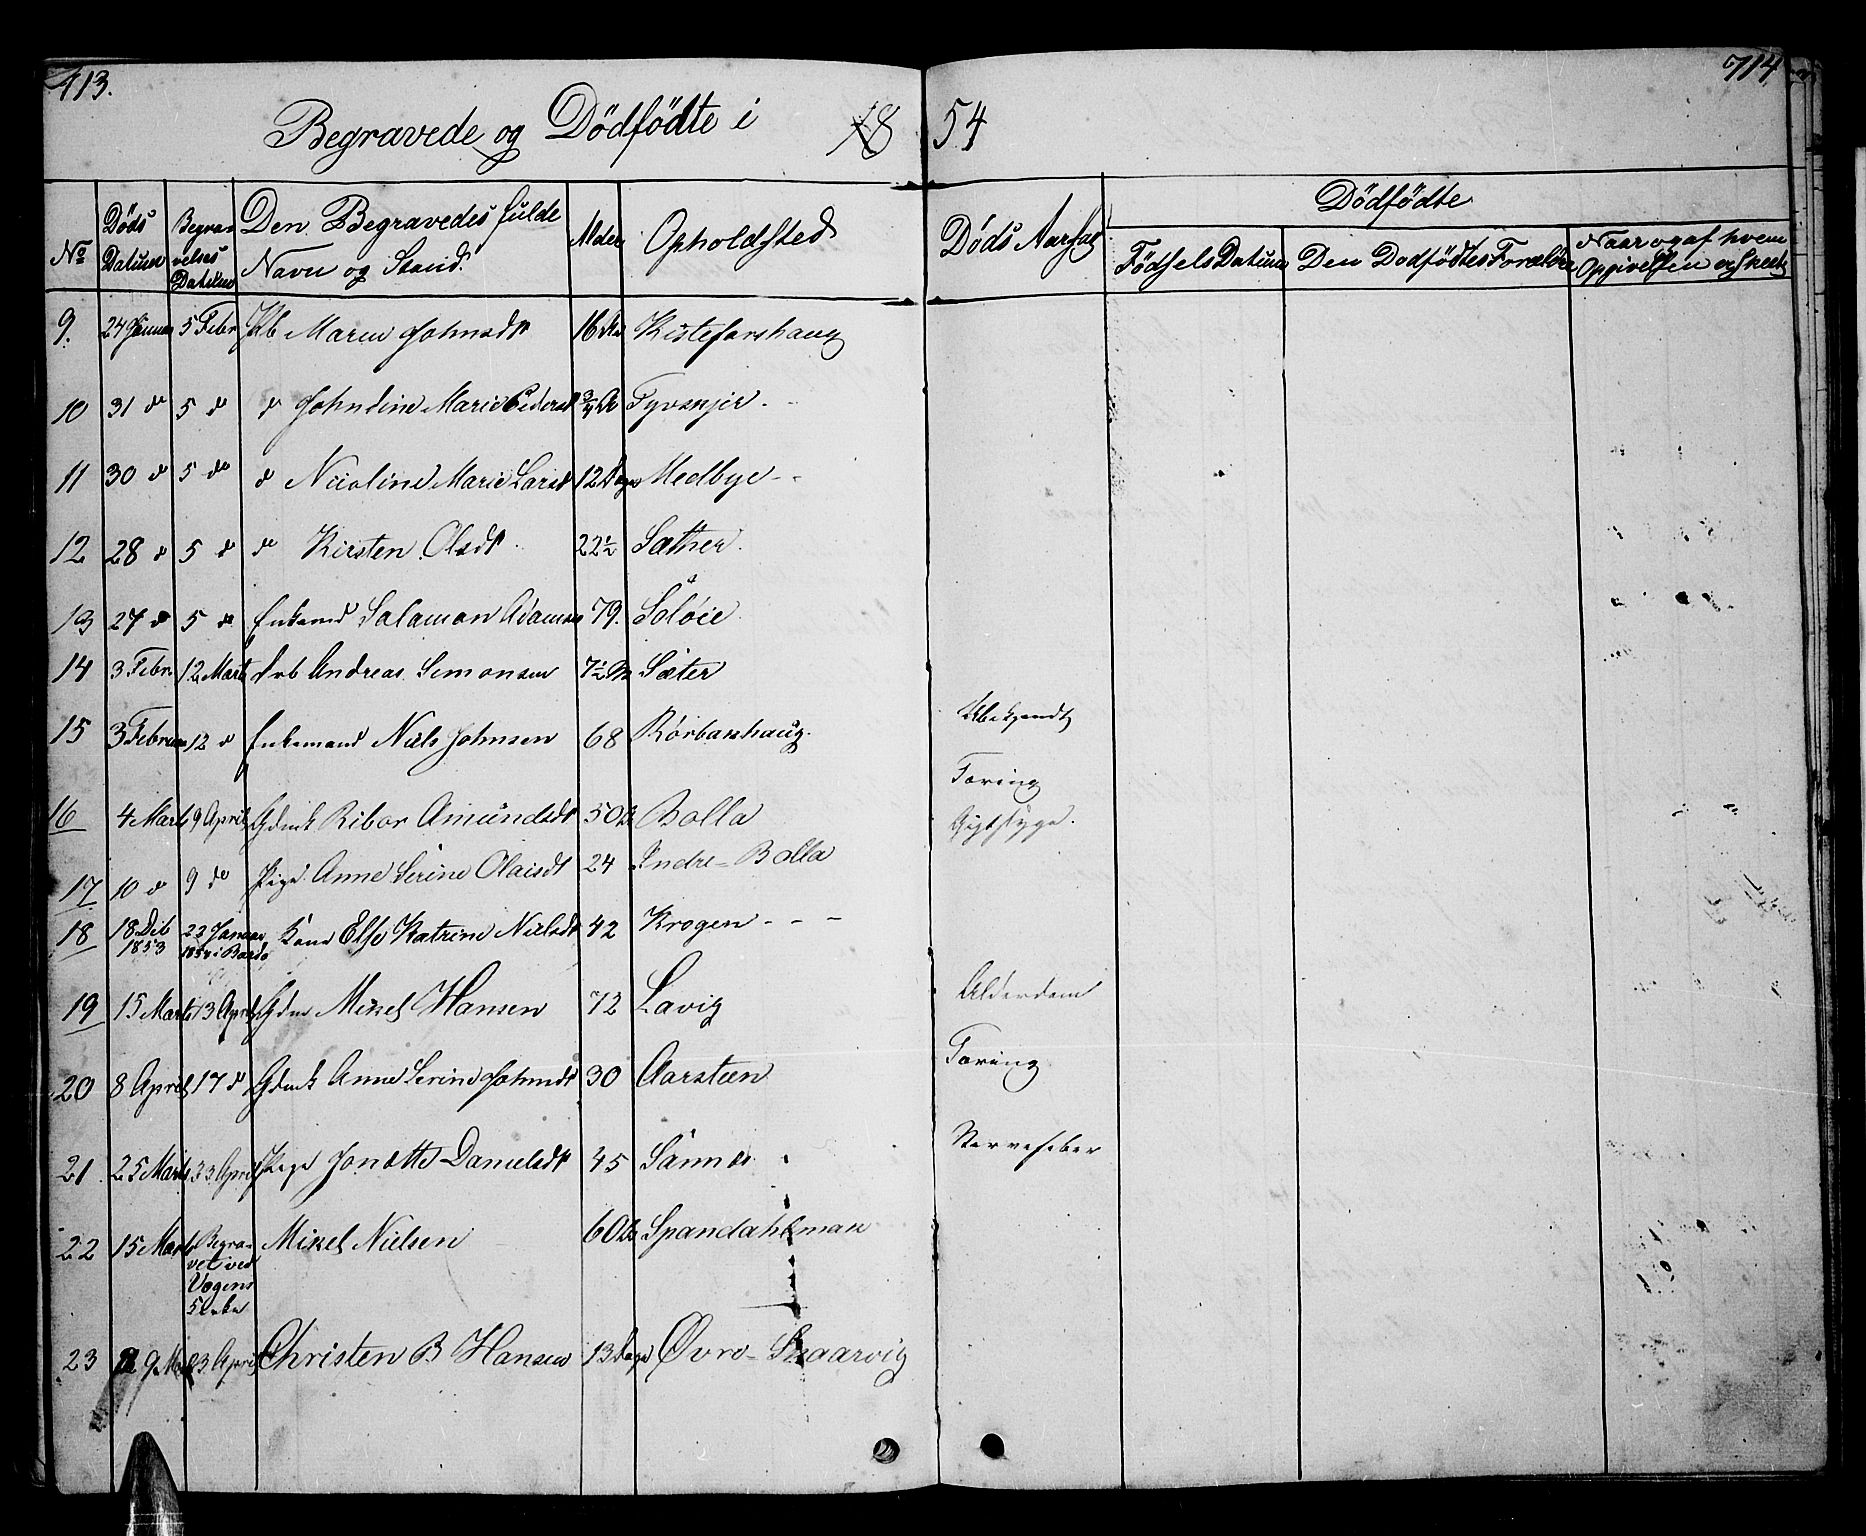 713.
714
Begravede og Dödfödte i 18 54
No
Döds Datum
Begravelses Datum
Den Begravedes fulde Navn og Stand.
Alder
Opholdsted
Döds Aarsag
Dödfödte
Födsels Datum
Den Dodfödtes Forældre
Naar og af hvem Opgivelsen er skeet
9. 24 Januar 5 Febr Maren Johnsdt 16
10 31 do 5 do do Johndine Marie Pedersd 3/4 Tyvskjer
11 30 do 5 do do Nicoline Marie Larsd 12 Dage Medbye
12 28 do 5 do do Kirsten Olsdt 22 1/2 Sæther
13 27 do 5 do Enkemd Salamon Adamsen 79. Soløie
14 3 Febr 12 Marts Andreas Simonsen 7 1/2 Sæter
15 3 Februar 12 do Enkemand Niels Johnsen 68 Rørbakhaug. Ubekjendt
16 4 Marts 9 April Gdmk Ribor Amundsdt 50 Bolla Tæring
17 10 do 9 do Pige Anne Serine Olaisdt 24 Indre-Bolla Gigtsyge.
18 18 Dcb 1853 22 Januar 1854 i Bardo Kone Else Katrine Nielsdt 42 Krogen
19 15 Marts 13 April Gdm Mikel Hansen 72 Lavig Alderdom
20 8 April 17 do Gdmk Anne Serine Johnsdt 30 Aarsteen Tæring
21 25 Marts 23 April Pige Jonette Danielsdt 45 Sannes Nervefeber
22 15 Marts Begravet ved Vogens Kirke Mikel Nielsen 60 Spandahlman
23 9 Mar 23 April Christen B Hansen 13 Dage Øvre-Skaarvig